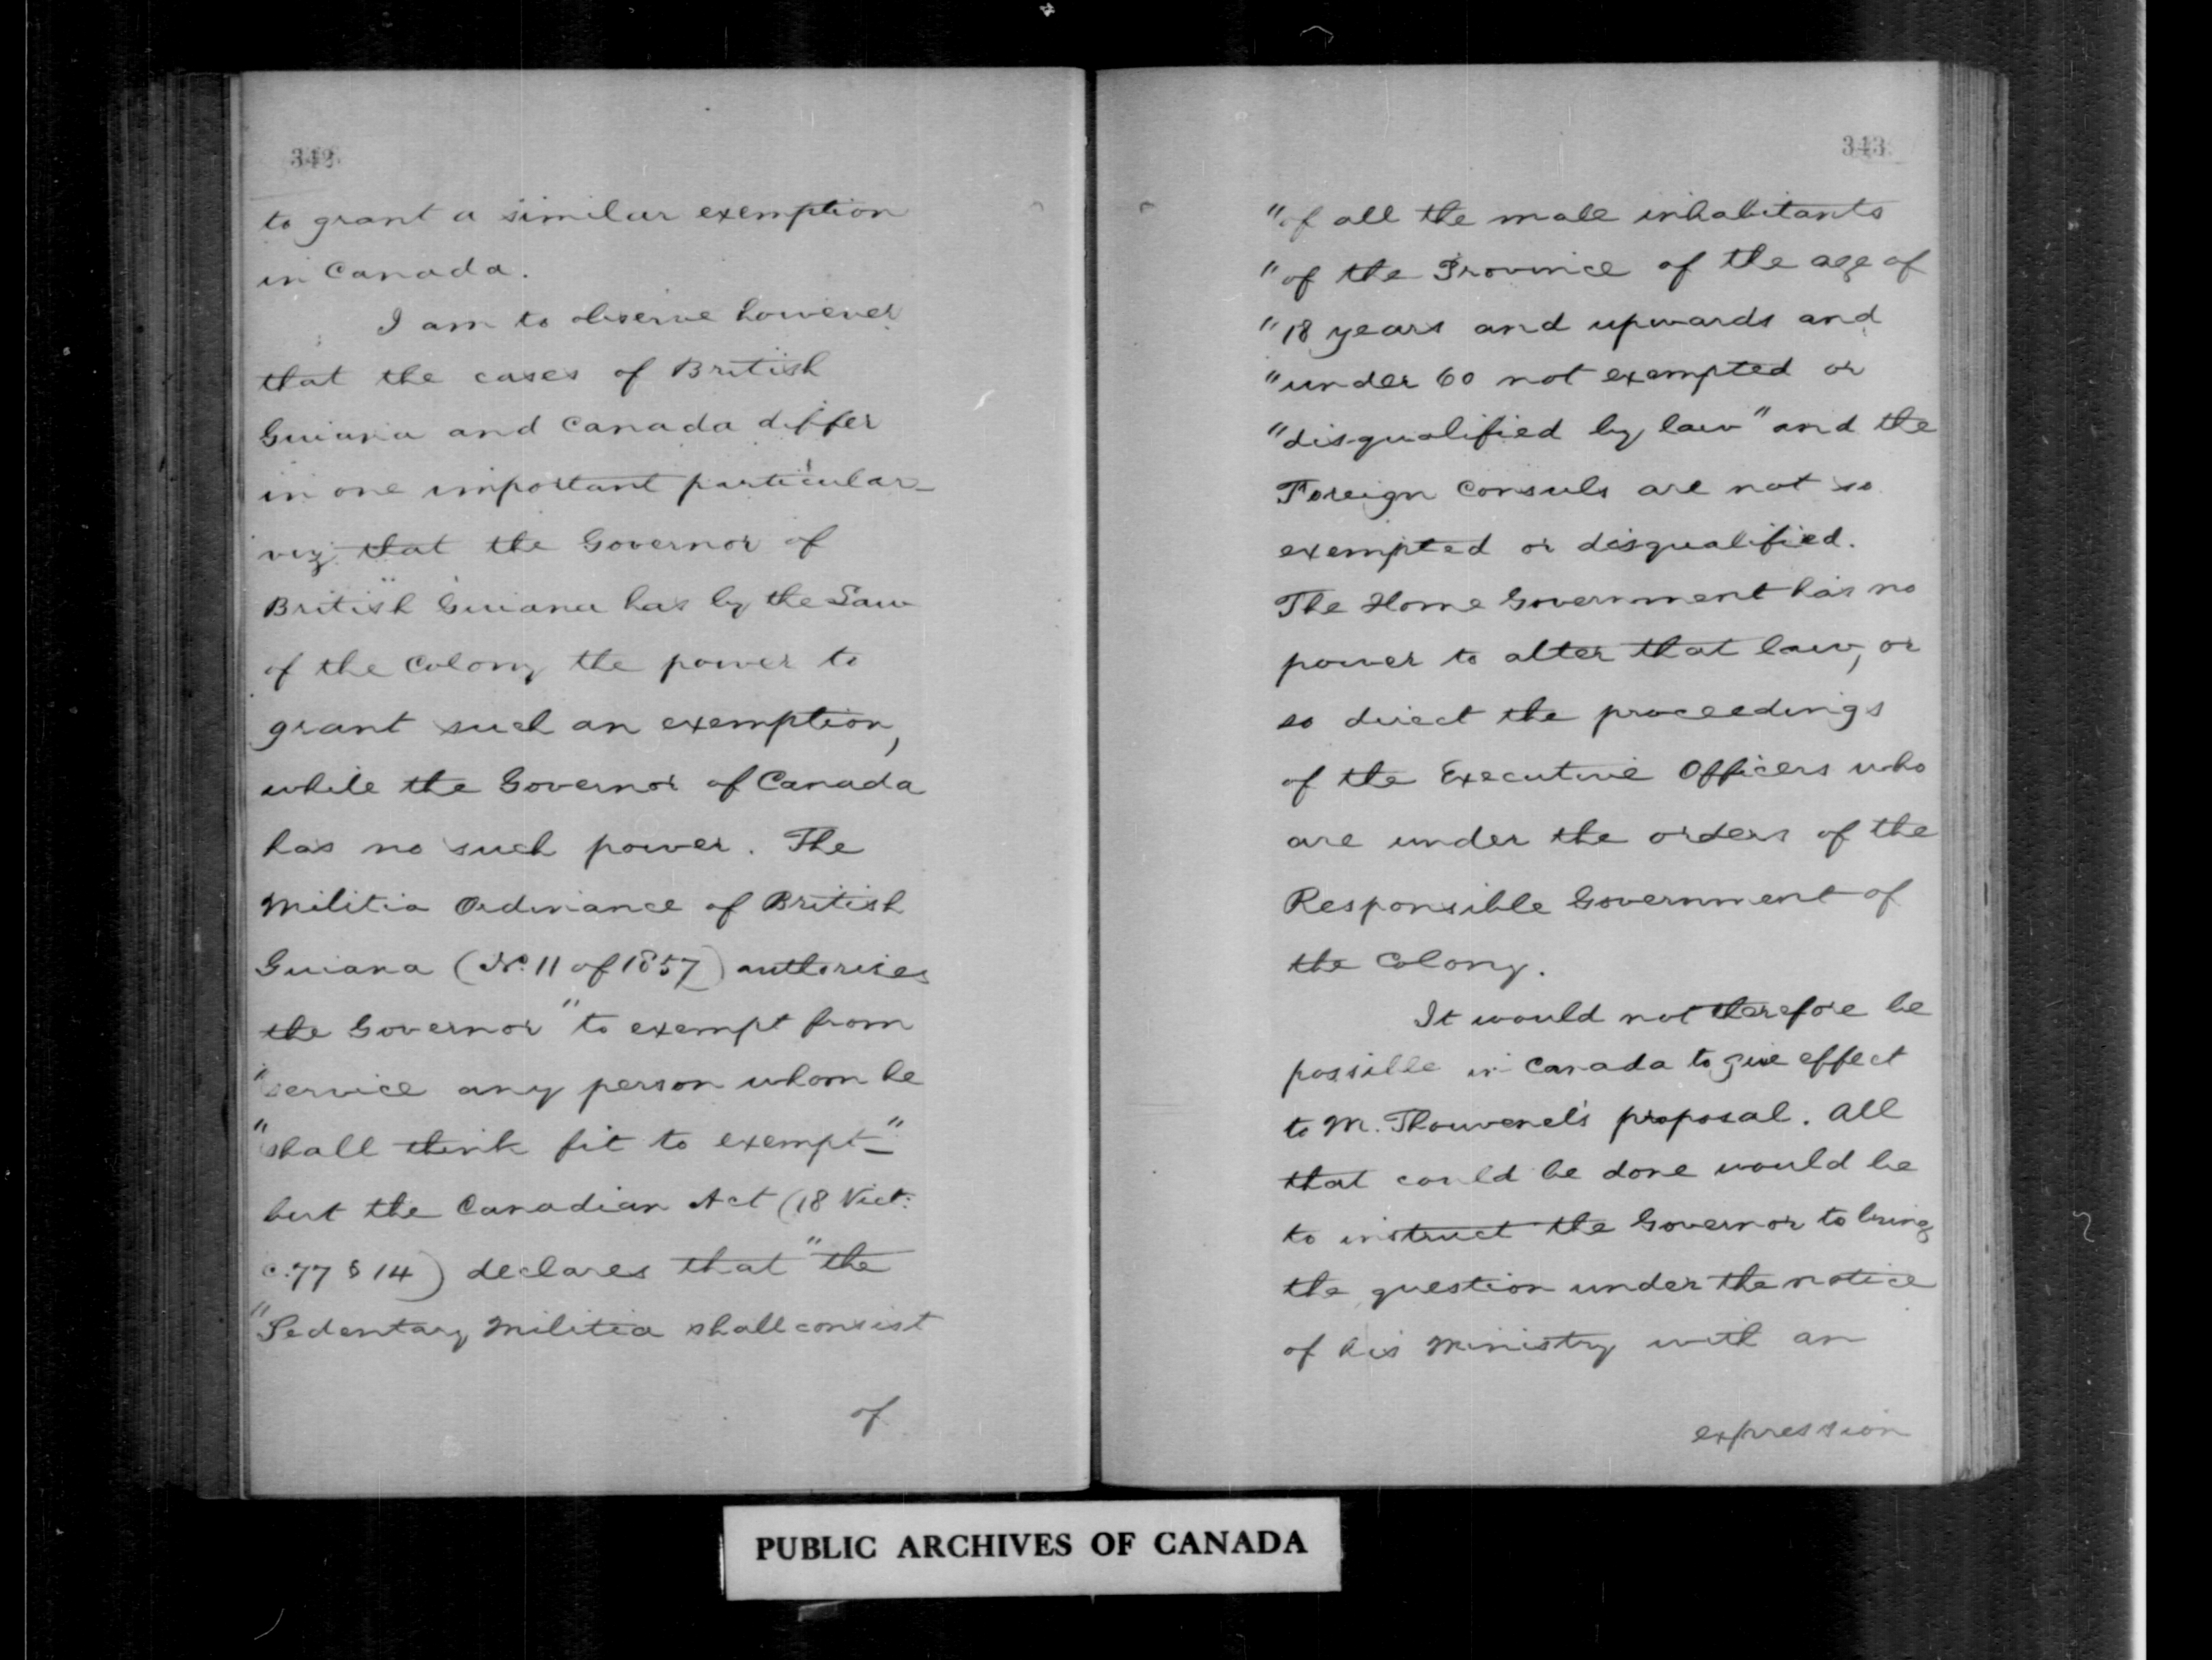 342
to grant a similar exemption
in Canada.
I am to observe however
that the cases of British
Guiana and Canada differ
in one important particular_
viz that the Governor of
British Guiana has by the Law
of the Colony the power to
grant such an exemption,
while the Governor of Canada
has no such power. The
Militia Ordinance of British
Guiana (No. 11 of 1857) authorises
the Governor "to exempt from
"service any person whom he
"shall think fit to exempt_"
but the Canadian Act (18 Vict:
c.77 § 14) declares that "the
"Sedentary Militia shall consist
of
343
"of all the male inhabitants
"of the Province of the age of
"18 years and upwards and
"under 60 not exempted or
"disqualified by law" and the
Foreign Consuls are not so
exempted or disqualified.
The Home Government has no
power to alter that law, or
so direct the proceedings
of the Executive Officers who
are under the orders of the
Responsible Government of
the Colony.
It would not therefore be
possible in Canada to give effect
to M. Thouvenel's proposal. All
that could be done would be
to instruct the Governor to bring
the question under the notice
of his Ministry with an
expression
PUBLIC ARCHIVES OF CANADA